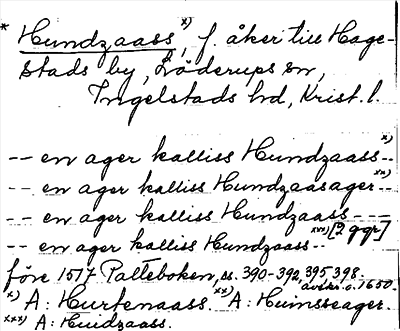 * Hundzaass x), f. åker till Hage-
stads by, Löderups sn,
Ingelstads hd, Krist. l.
-- en ager kalliss Hundzaass x) --
-- en ager kalliss Hundzaasager xx) --
-- en ager kalliss Hundzaass ---
-- en ager kalliss Hundzaass xxx) -- [2 ggr]
före 1517 Palteboken, ss. 390-392, 395, 398.
avskr. c. 1650.
x) A: Hurtenaass. xx) A: Huinsseager.
xxx) A: Huidzaass.